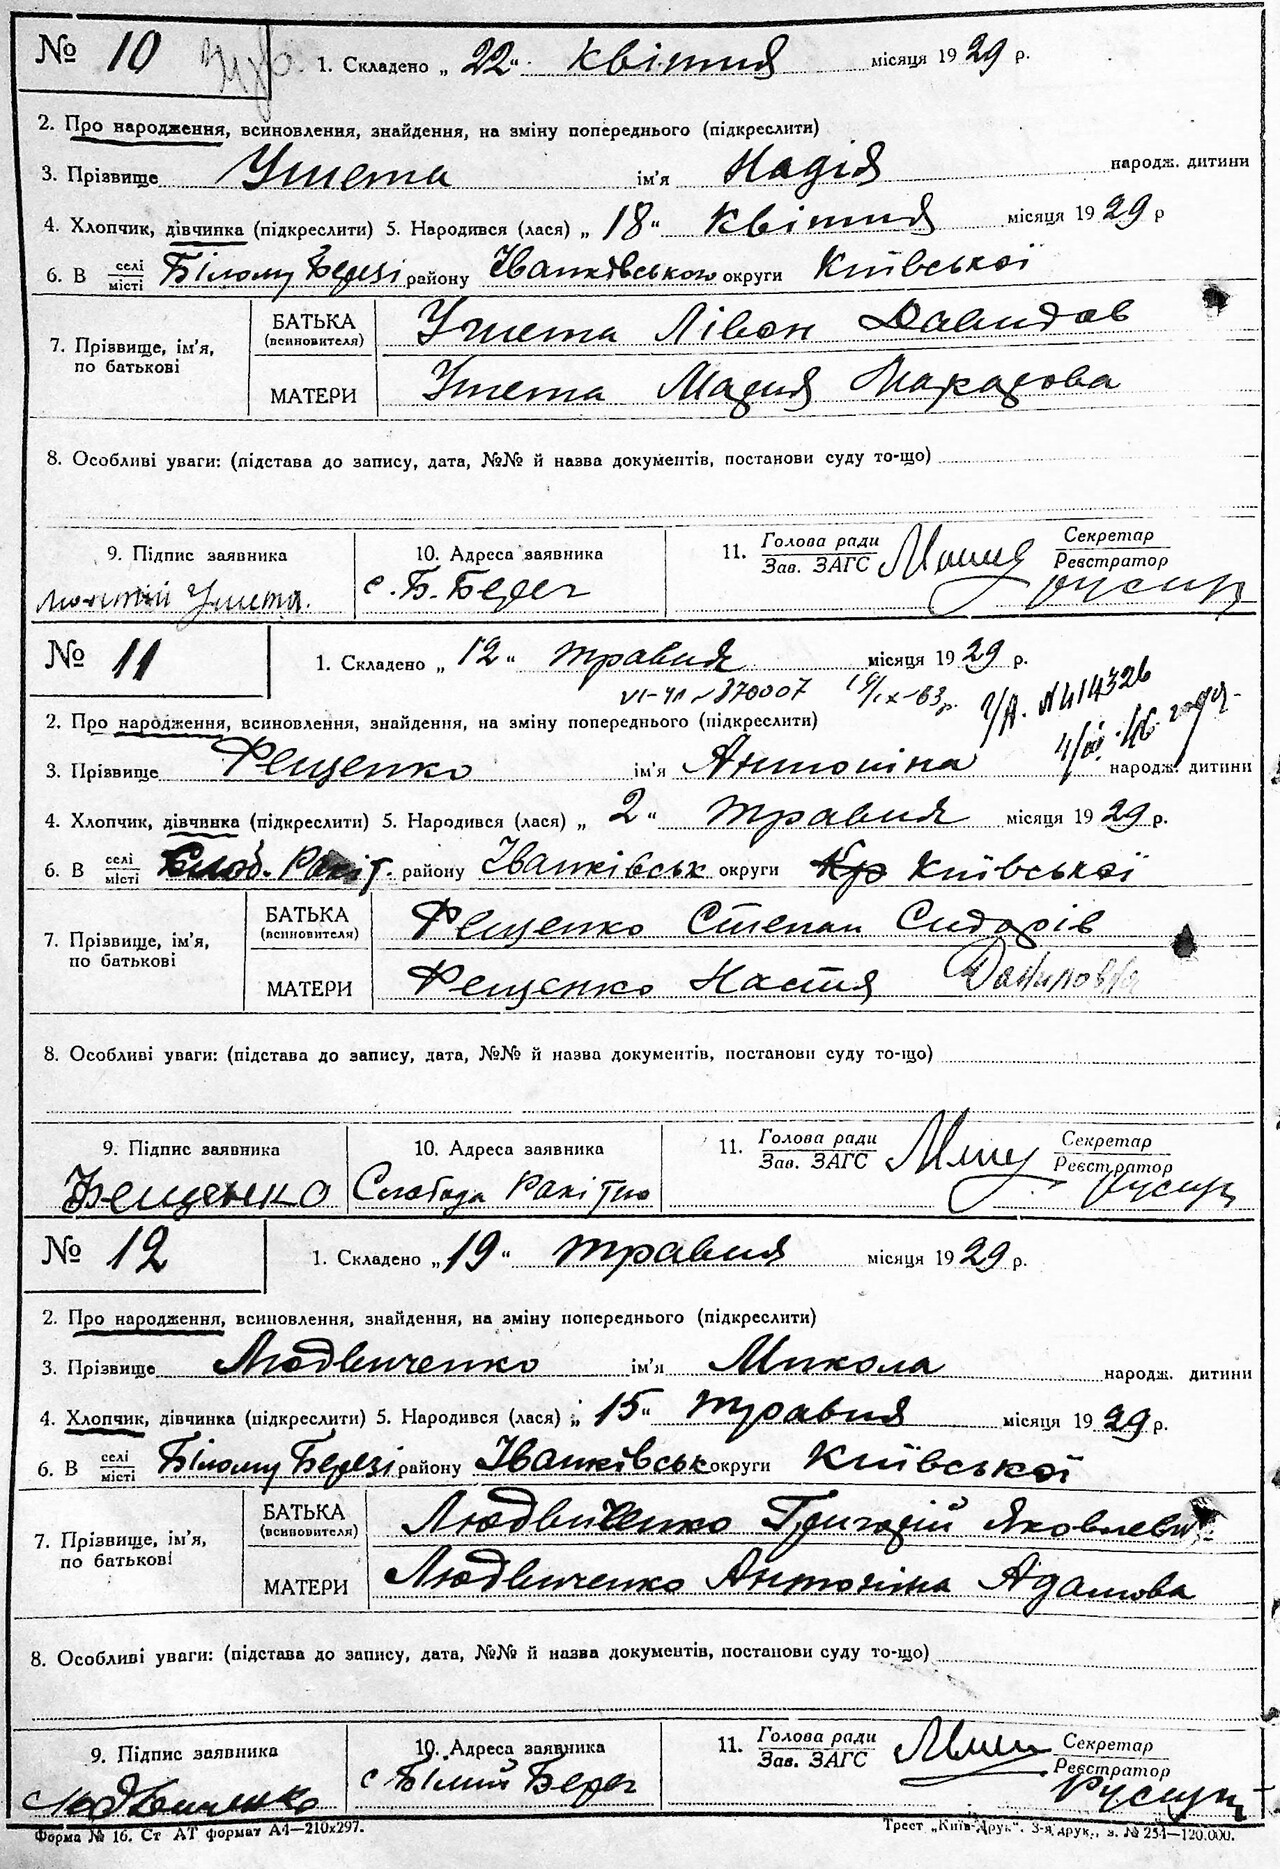 № 10 1. Складено „ 22 “ квітня місяця 1929 р.
2. Про народження, всиновлення, знайдення, на зміну попереднього (підкреслити)
3. Прізвище Ушета ім'я Надія народж. дитини
4. Хлопчик, дівчинка (підкреслити) 5. Народився (лася) „ 18 “ квітня місяця 1929 р
6. В селі місті Білому Березі району Іванківського округи Київської
7. Прізвище, ім'я, по батькові
БАТЬКА (всиновителя) Ушета Лівон Давидов
МАТЕРИ Ушета Мария Макарова
8. Особливі уваги: (підстава до запису, дата, №№ й назва документів, постанови суду то-що)
9. Підпис заявника 10. Адреса заявника 11. Голова ради Зав. ЗАГС Секретар Реєстратор
Ушета. с. Б. Берег
№ 11 1. Складено „ 12 “ травня місяця 1929 р.
2. Про народження, всиновлення, знайдення, на зміну попереднього (підкреслити)
3. Прізвище Фещенко ім'я Антоніна народж. дитини
4. Хлопчик, дівчинка (підкреслити) 5. Народився (лася) „ 2 “ травня місяця 1929 р.
6. В селі місті Слоб. Ракіт. району Іванківськ округи Київської
7. Прізвище, ім'я, по батькові
БАТЬКА (всиновителя) Фещенко Степан Сидорів
МАТЕРИ Фещенко Настя Даниловна
8. Особливі уваги: (підстава до запису, дата, №№ й назва документів, постанови суду то-що)
9. Підпис заявника 10. Адреса заявника 11. Голова ради Зав. ЗАГС Секретар Реєстратор
Фещенко Слобода Ракітно
№ 12 1. Складено „ 19 “ травня місяця 1929 р.
2. Про народження, всиновлення, знайдення, на зміну попереднього (підкреслити)
3. Прізвище Людвиченко ім'я Микола народж. дитини
4. Хлопчик, дівчинка (підкреслити) 5. Народився (лася) „ 15 “ травня місяця 1929 р.
6. В селі місті Білому Березі району Іванківськ округи Київської
7. Прізвище, ім'я, по батькові
БАТЬКА (всиновителя) Людвиченко Григорій Яковлевич
МАТЕРИ Людвиченко Антоніна Адамова
8. Особливі уваги: (підстава до запису, дата, №№ й назва документів, постанови суду то-що)
9. Підпис заявника 10. Адреса заявника 11. Голова ради Зав. ЗАГС Секретар Реєстратор
Людвиченко с Білий Берег
Форма № 16. Ст АТ формат А4—210x297. Трест „Київ-Друк“. 3-я друк., з. № 254—120.000.